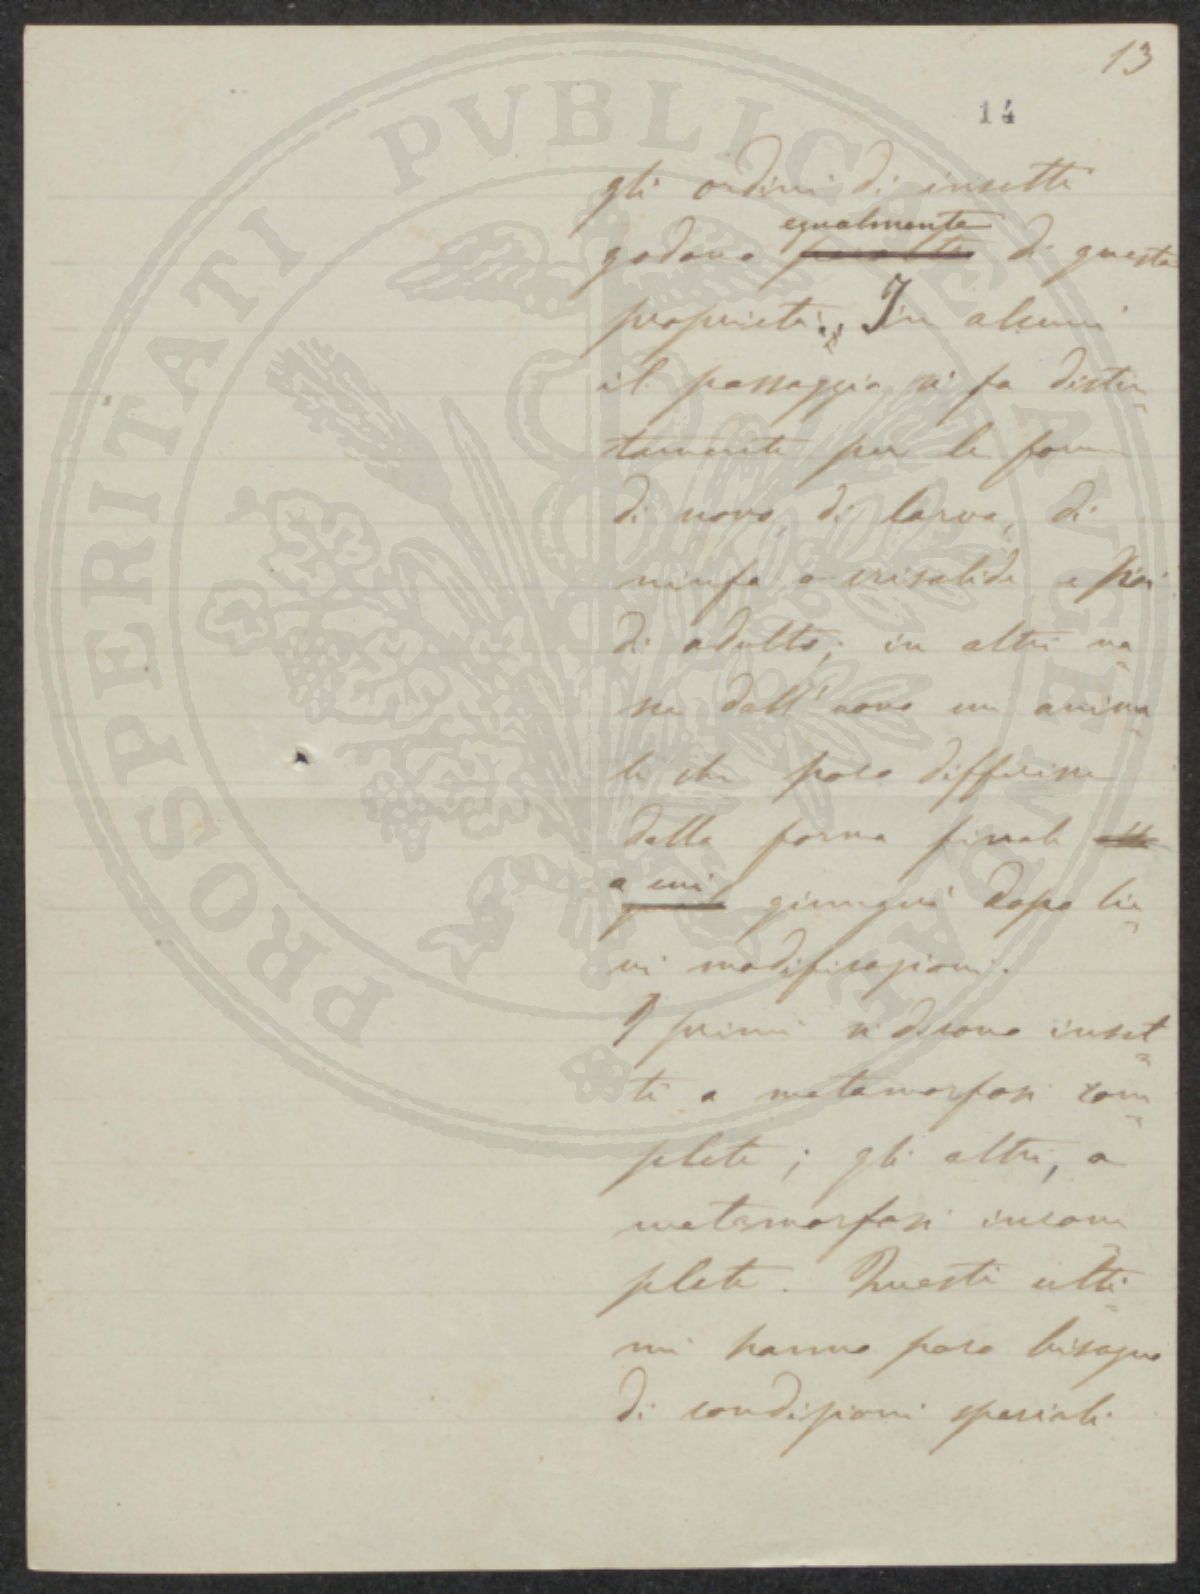 13
14
gli ordini di insetti
egualmente
godono di questa
proprietà. In alcuni
il passaggio si fa distin
tamente per le forme
di uovo, di larva, di
ninfa o crisalide e poi
di adulto; in altri na
sce dall'uovo un anima
le che poco differisce
dalla forma finale
a cui giungerà dopo lie
vi modificazioni.
I primi si dicono inset
ti a metamorfosi com
plete; gli altri, a
metamorfosi incom
plete. Questi ulti
mi hanno poco bisogno
di condizioni speciali
PROSPERITATI PVBLICAE AVGENDAE